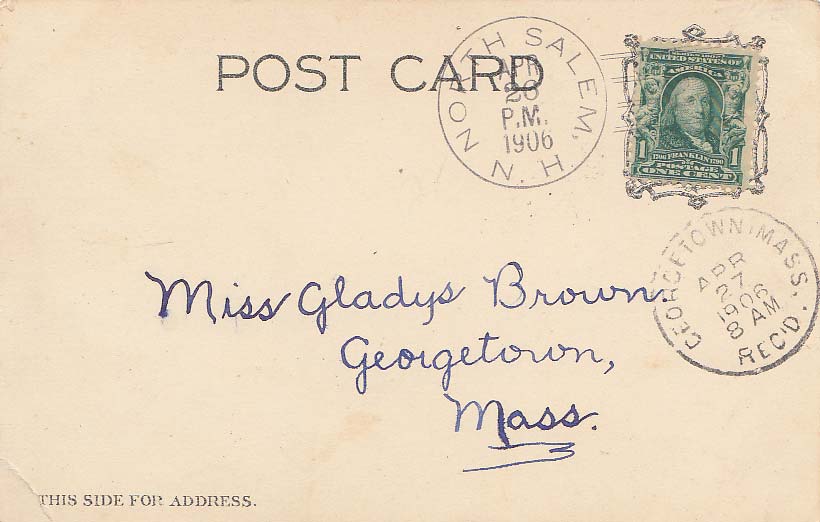 POST CARD
NORTH SALEM, N.H.
APR
26
P.M.
1906
UNITED STATES OF
AMERICA
1706 FRANKLIN 1790
1 POSTAGE 1
ONE CENT
GEORGETOWN, MASS.
APR
27
1906
8 AM
REC'D.
Miss Gladys Brown.
Georgetown,
Mass.
THIS SIDE FOR ADDRESS.